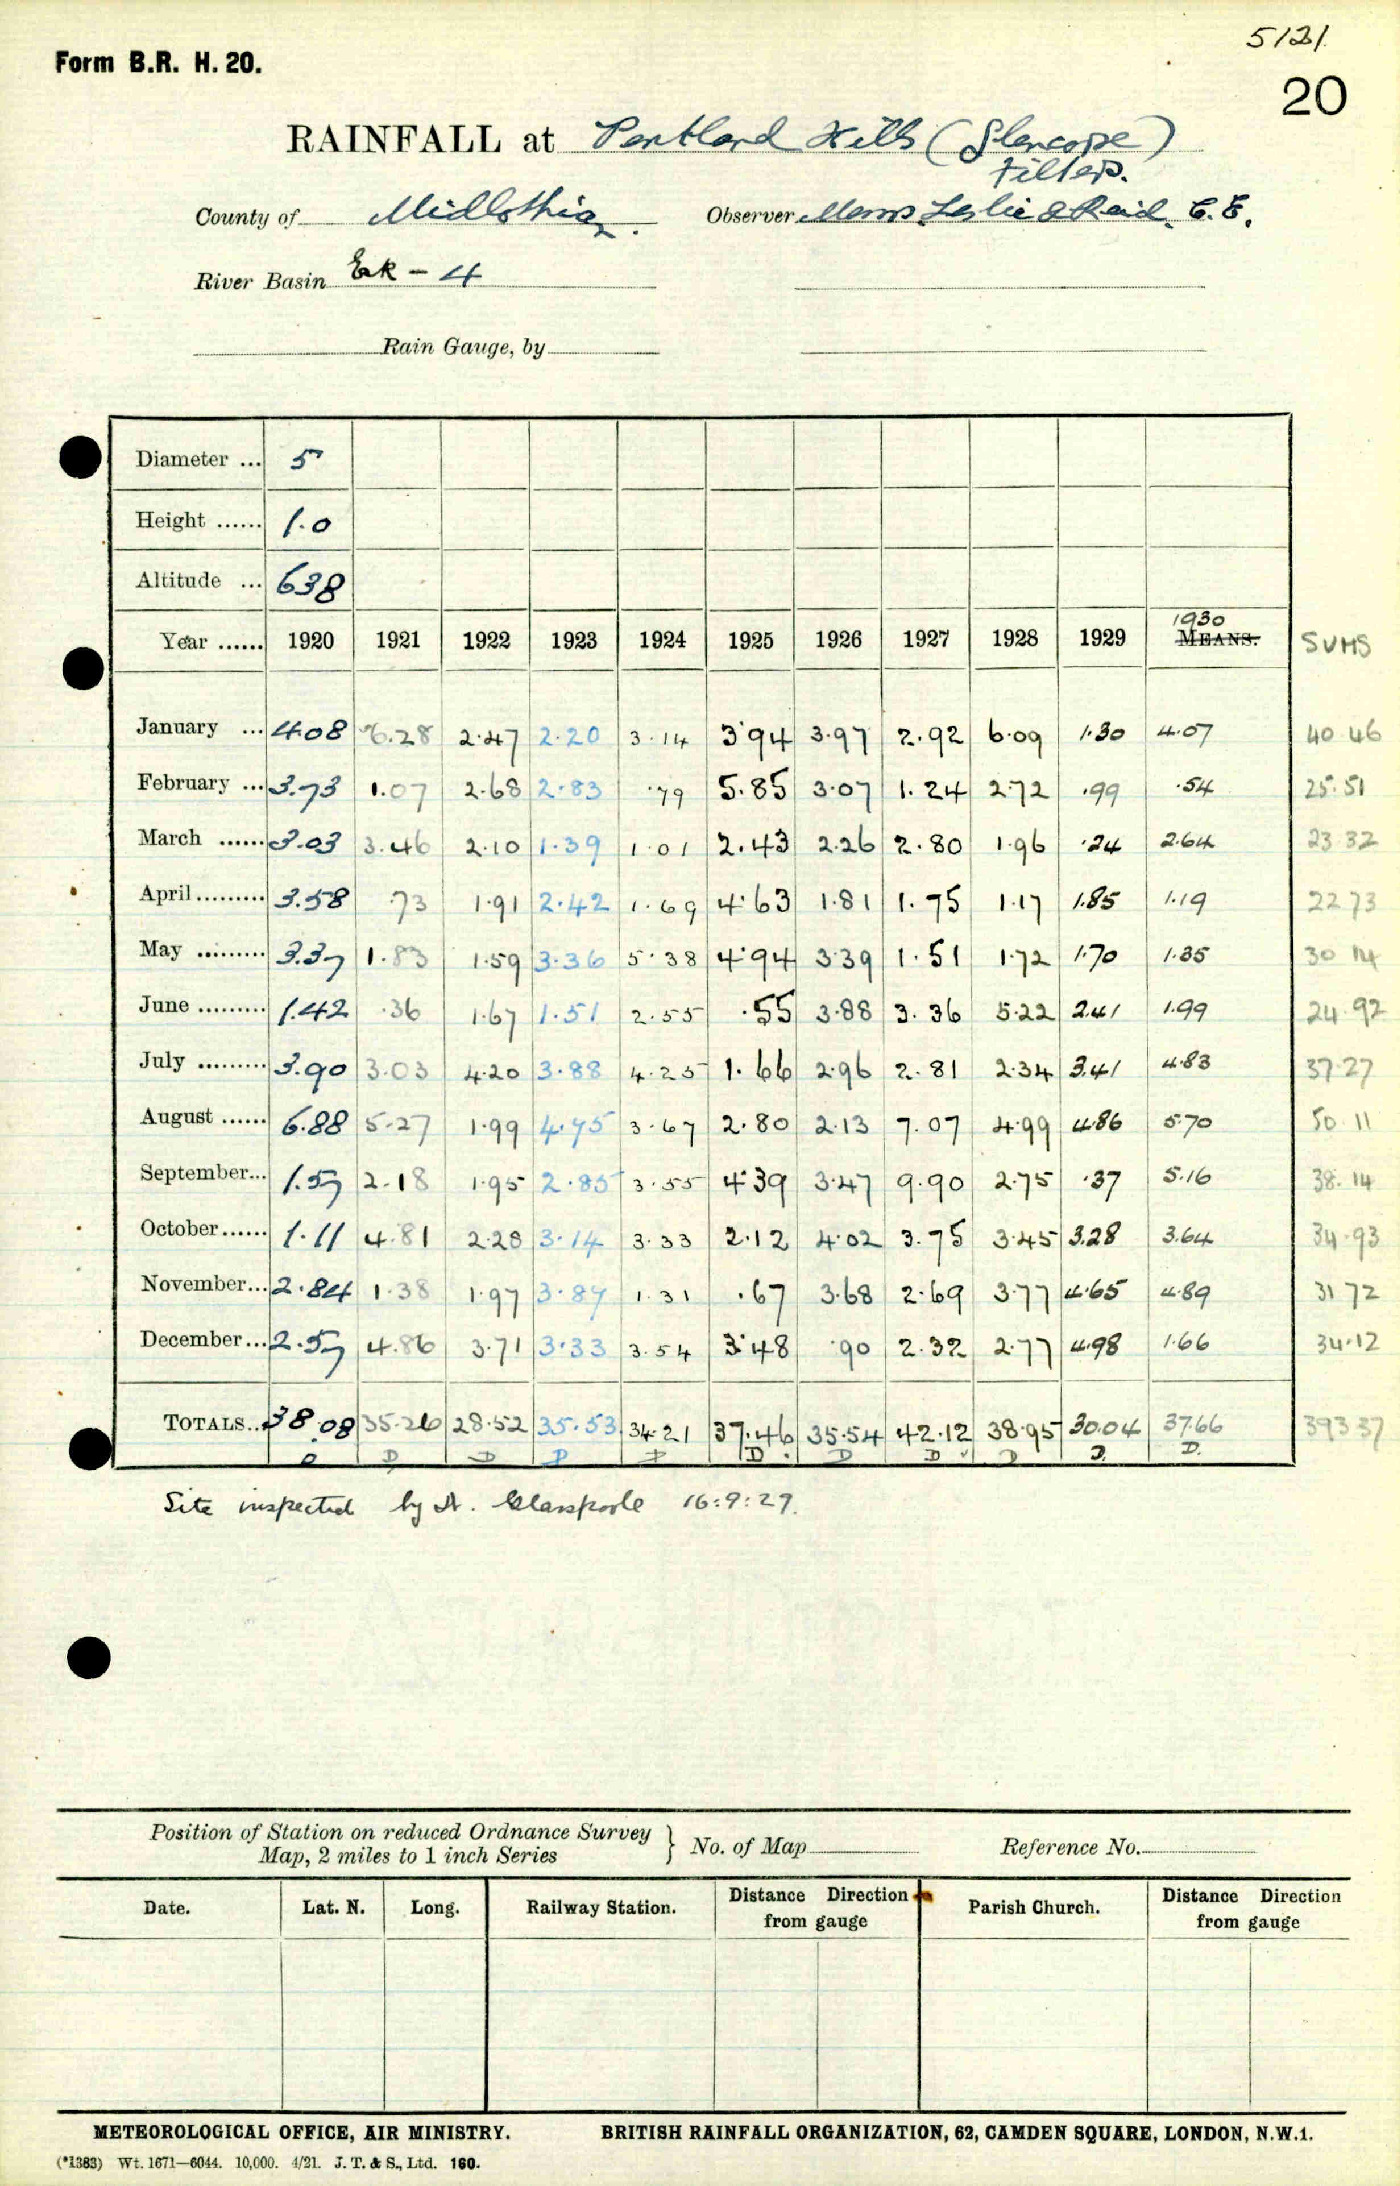 5121
Form B.R. H. 20.
20
RAINFALL at Pentland Hills (Glencorse)
Filters.
County of Midlothian. Observer Messrs. Leslie & Reid, C.E.
River Basin Esk - 4
Rain Gauge, by
Diameter ... 5
Height ...... 1.0
Altitude ... 638
1930
Year ...... 1920 1921 1922 1923 1924 1925 1926 1927 1928 1929 MEANS. SUMS
January ... 4.08 6.28 2.47 2.20 3.14 3.94 3.97 2.92 6.09 1.30 4.07 40.46
February ... 3.73 1.07 2.68 2.83 .79 5.85 3.07 1.24 2.72 .99 .54 25.51
March ...... 3.03 3.46 2.10 1.39 1.01 2.43 2.26 2.80 1.96 .24 2.64 23 32
April ......... 3.58 .73 1.91 2.42 1.69 4.63 1.81 1.75 1.17 1.85 1.19 22 73
May ......... 3.37 1.83 1.59 3.36 5.38 4.94 3.39 1.51 1.72 1.70 1.35 30 14
June ......... 1.42 .36 1.67 1.51 2.55 .55 3.88 3.36 5.22 2.41 1.99 24.92
July ......... 3.90 3.03 4.20 3.88 4.25 1.66 2.96 2.81 2.34 3.41 4.83 37.27
August ...... 6.88 5.27 1.99 4.75 3.67 2.80 2.13 7.07 4.99 4.86 5.70 50.11
September... 1.57 2.18 1.95 2.85 3.55 4.39 3.47 9.90 2.75 .37 5.16 38.14
October...... 1.11 4.81 2.28 3.14 3.33 2.12 4.02 3.75 3.45 3.28 3.64 34.93
November... 2.84 1.38 1.97 3.87 1.31 .67 3.68 2.69 3.77 4.65 4.89 31 72
December ... 2.57 4.86 3.71 3.33 3.54 3.48 .90 2.32 2.77 4.98 1.66 34.12
TOTALS... 38.08 35.26 28.52 35.53 34.21 37.46 35.54 42.12 38.95 30.04 37.66 393 37
D D D D D D D D D D
Site inspected by A. Glasspoole 16:9:27.
Position of Station on reduced Ordnance Survey
Map, 2 miles to 1 inch Series } No. of Map Reference No.
Date. Lat. N. Long. Railway Station. Distance Direction from gauge Parish Church. Distance Direction from gauge
METEOROLOGICAL OFFICE, AIR MINISTRY. BRITISH RAINFALL ORGANIZATION, 62, CAMDEN SQUARE, LONDON, N.W.1.
(*1383) Wt. 1671—6044. 10,000. 4/21. J. T. & S., Ltd. 160.